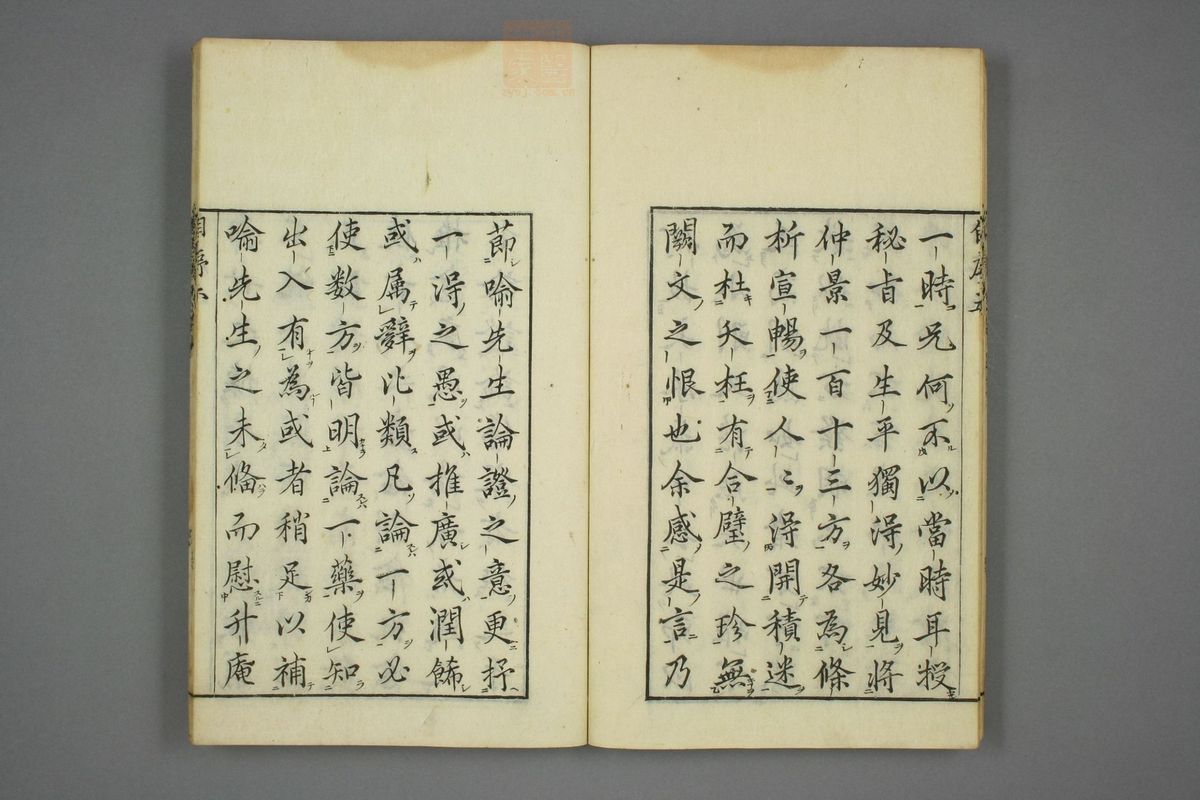 一時兄何不以當時耳授
秘旨及生平獨得妙見將
仲景一百十三方各為條
析宣暢使人〻得開積迷
而杜夭枉有合璧之珍無
闕文之恨也余感是言乃
節喻先生論證之意更抒
一得之愚或推廣或潤餙
或属辭比類凡論一方必
使数方皆明論一藥使知
出入有為或者稍足以補
喻先生之未俻而慰升庵